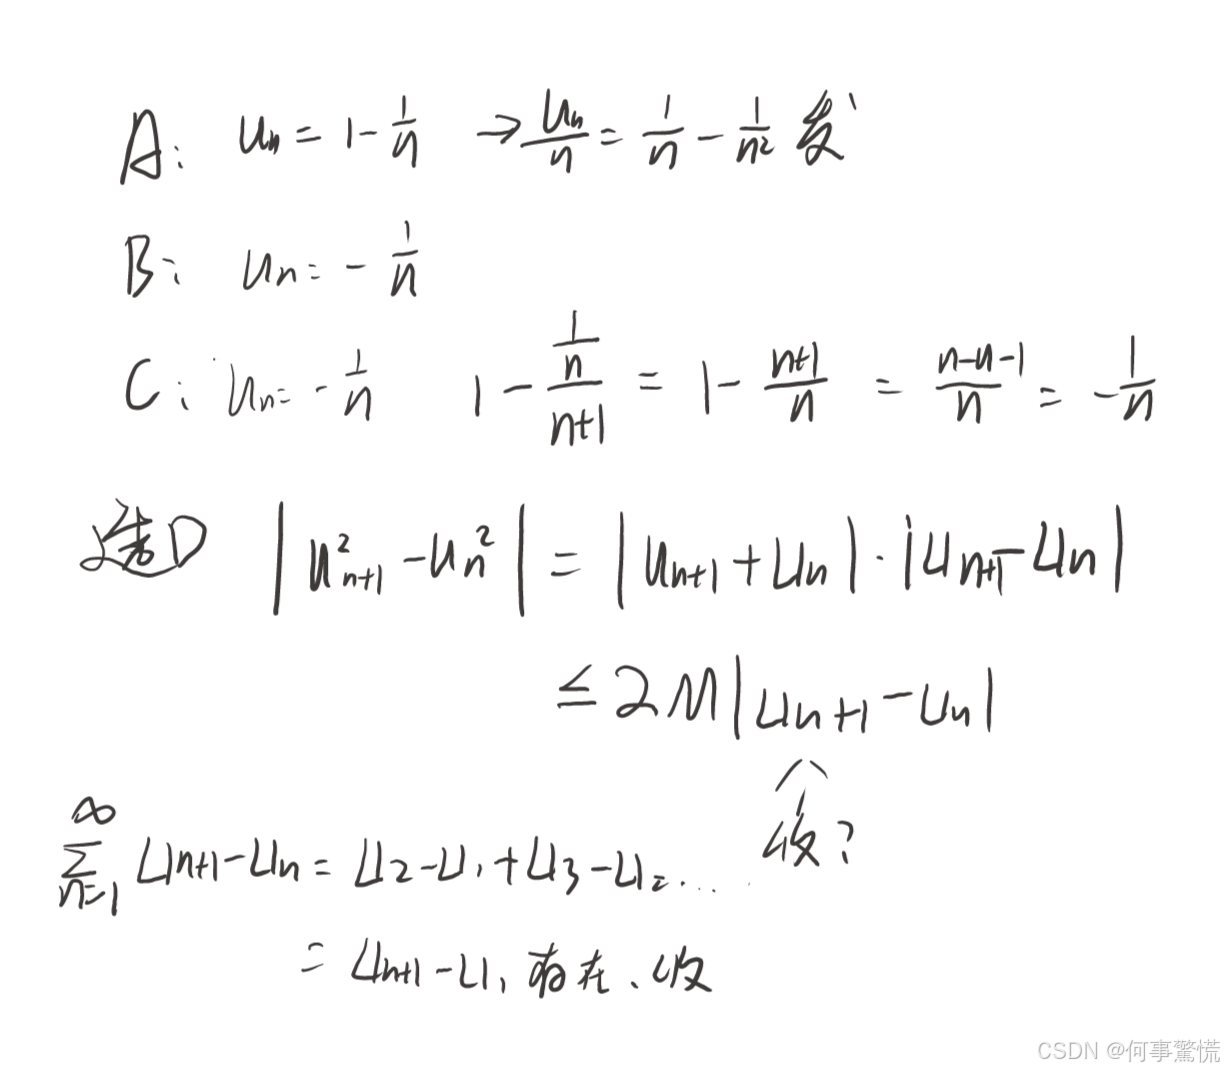 A: uₙ = 1 - 1/n → uₙ/n = 1/n - 1/n² 发
B: uₙ = - 1/n
C: uₙ = - 1/n 1 - (1/n)/(n+1) = 1 - (n+1)/n = (n-n-1)/n = - 1/n
选D |u²ₙ₊₁ - uₙ²| = |uₙ₊₁ + uₙ| · |uₙ₊₁ - uₙ|
≤ 2M|uₙ₊₁ - uₙ|
收?
∑_{n=1}^{∞} uₙ₊₁ - uₙ = u₂ - u₁ + u₃ - u₂ ...
= uₙ₊₁ - u₁, 存在、收
CSDN @何事驚慌